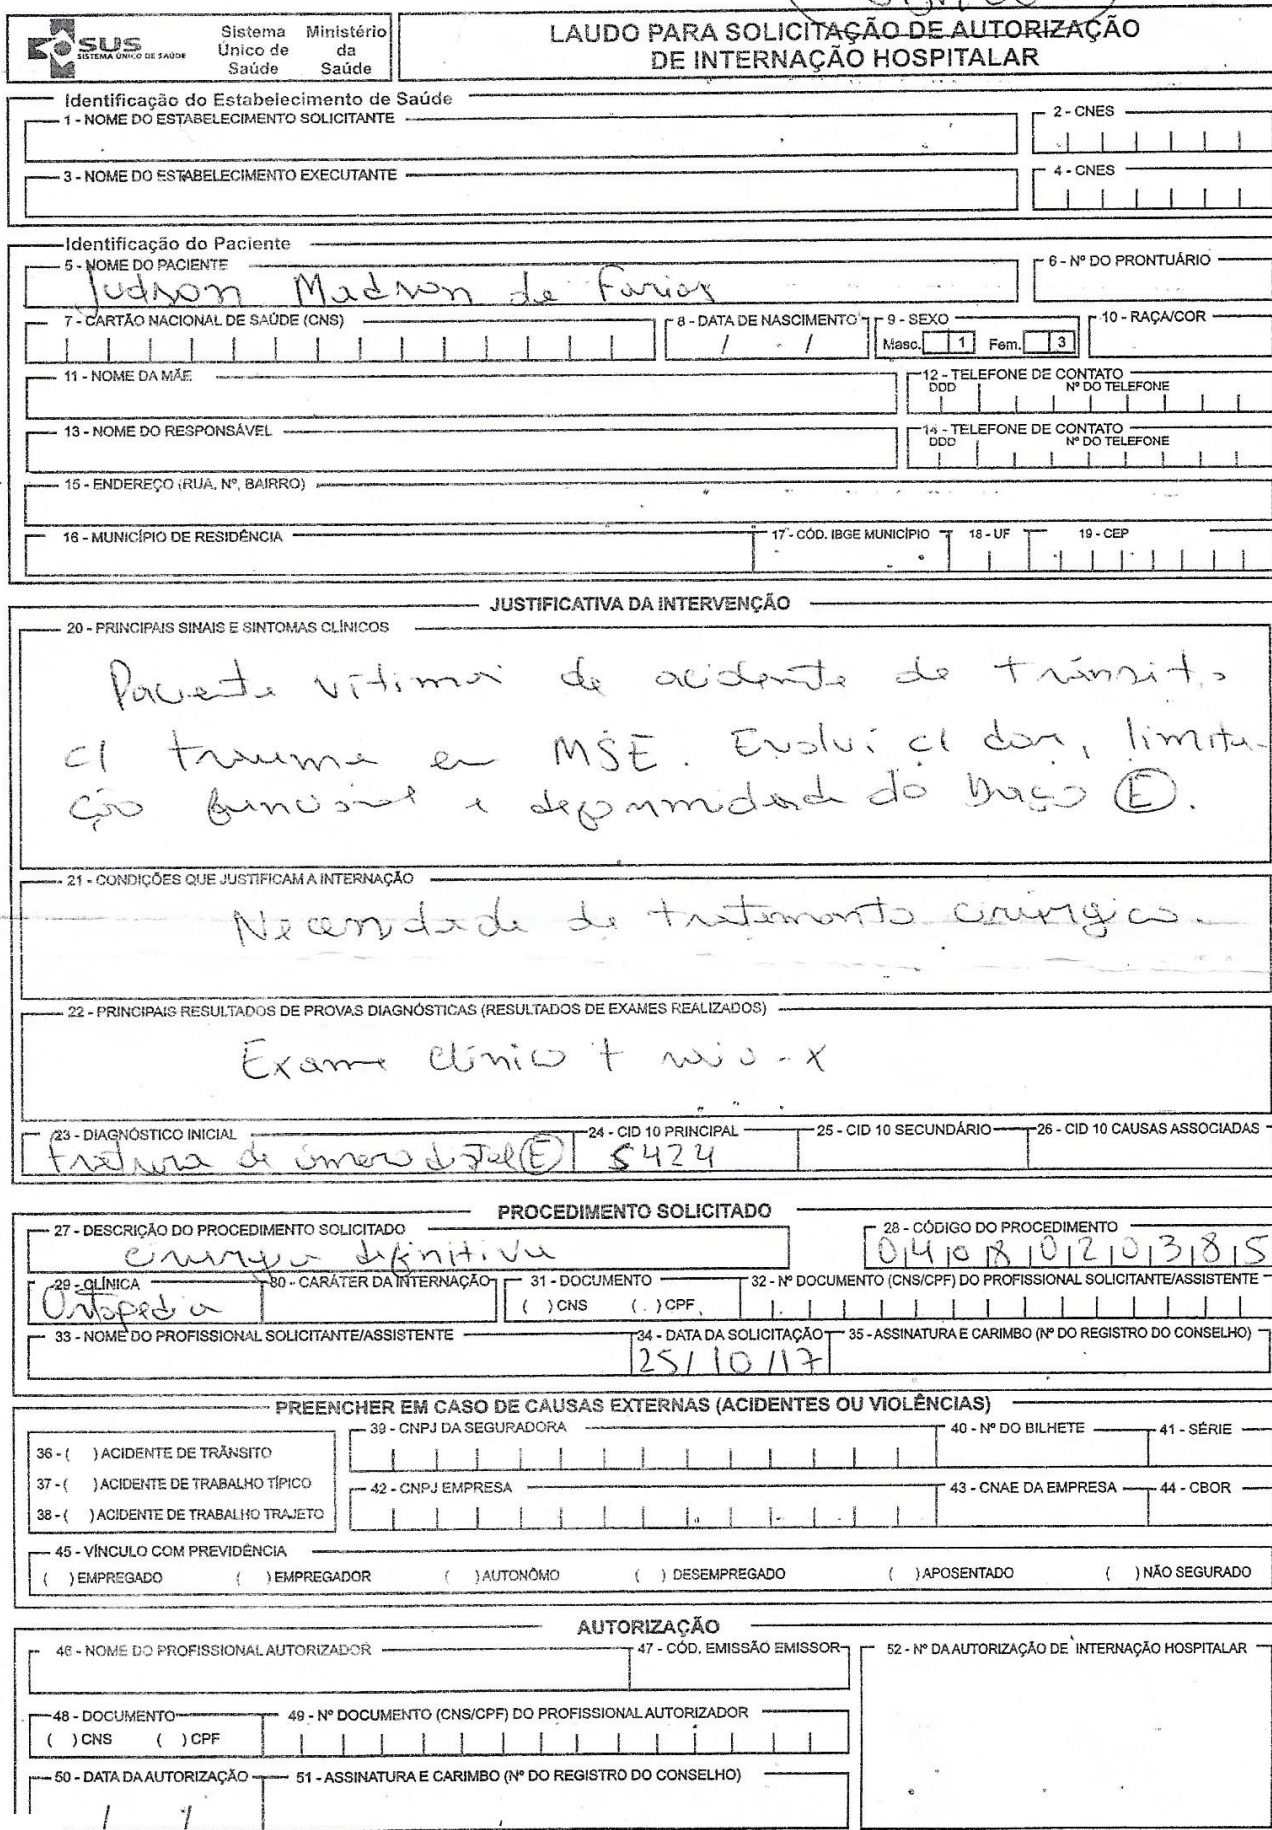 SUS
SISTEMA ÚNICO DE SAÚDE
Sistema Único de Saúde
Ministério da Saúde
LAUDO PARA SOLICITAÇÃO DE AUTORIZAÇÃO
DE INTERNAÇÃO HOSPITALAR
Identificação do Estabelecimento de Saúde
1 - NOME DO ESTABELECIMENTO SOLICITANTE
2 - CNES
3 - NOME DO ESTABELECIMENTO EXECUTANTE
4 - CNES
Identificação do Paciente
5 - NOME DO PACIENTE
6 - Nº DO PRONTUÁRIO
Judson Madson de Farias
7 - CARTÃO NACIONAL DE SAÚDE (CNS)
8 - DATA DE NASCIMENTO
9 - SEXO
10 - RAÇA/COR
/ /
Masc. 1 Fem. 3
11 - NOME DA MÃE
12 - TELEFONE DE CONTATO
DDD Nº DO TELEFONE
13 - NOME DO RESPONSÁVEL
14 - TELEFONE DE CONTATO
DDD Nº DO TELEFONE
15 - ENDEREÇO (RUA, Nº, BAIRRO)
16 - MUNICÍPIO DE RESIDÊNCIA
17 - CÓD. IBGE MUNICÍPIO
18 - UF
19 - CEP
JUSTIFICATIVA DA INTERVENÇÃO
20 - PRINCIPAIS SINAIS E SINTOMAS CLÍNICOS
Paciente vítima de acidente de trânsito
c/ trauma em MSE. Evolui c/ dor, limita-
ção funcional e deformidade do braço (E).
21 - CONDIÇÕES QUE JUSTIFICAM A INTERNAÇÃO
Necessidade de tratamento cirúrgico.
22 - PRINCIPAIS RESULTADOS DE PROVAS DIAGNÓSTICAS (RESULTADOS DE EXAMES REALIZADOS)
Exame clínico + raio-x
23 - DIAGNÓSTICO INICIAL
24 - CID 10 PRINCIPAL
25 - CID 10 SECUNDÁRIO
26 - CID 10 CAUSAS ASSOCIADAS
Fratura de úmero distal (E)
S424
PROCEDIMENTO SOLICITADO
27 - DESCRIÇÃO DO PROCEDIMENTO SOLICITADO
28 - CÓDIGO DO PROCEDIMENTO
cirurgia definitiva
0408020385
29 - CLÍNICA
30 - CARÁTER DA INTERNAÇÃO
31 - DOCUMENTO
32 - Nº DOCUMENTO (CNS/CPF) DO PROFISSIONAL SOLICITANTE/ASSISTENTE
Ortopedia
( ) CNS ( ) CPF
33 - NOME DO PROFISSIONAL SOLICITANTE/ASSISTENTE
34 - DATA DA SOLICITAÇÃO
35 - ASSINATURA E CARIMBO (Nº DO REGISTRO DO CONSELHO)
25/10/17
PREENCHER EM CASO DE CAUSAS EXTERNAS (ACIDENTES OU VIOLÊNCIAS)
36 - ( ) ACIDENTE DE TRÂNSITO
37 - ( ) ACIDENTE DE TRABALHO TÍPICO
38 - ( ) ACIDENTE DE TRABALHO TRAJETO
39 - CNPJ DA SEGURADORA
40 - Nº DO BILHETE
41 - SÉRIE
42 - CNPJ EMPRESA
43 - CNAE DA EMPRESA
44 - CBOR
45 - VÍNCULO COM PREVIDÊNCIA
( ) EMPREGADO ( ) EMPREGADOR ( ) AUTONÔMO ( ) DESEMPREGADO ( ) APOSENTADO ( ) NÃO SEGURADO
AUTORIZAÇÃO
46 - NOME DO PROFISSIONAL AUTORIZADOR
47 - CÓD. EMISSÃO EMISSOR
52 - Nº DA AUTORIZAÇÃO DE INTERNAÇÃO HOSPITALAR
48 - DOCUMENTO
49 - Nº DOCUMENTO (CNS/CPF) DO PROFISSIONAL AUTORIZADOR
( ) CNS ( ) CPF
50 - DATA DA AUTORIZAÇÃO
51 - ASSINATURA E CARIMBO (Nº DO REGISTRO DO CONSELHO)
/ /